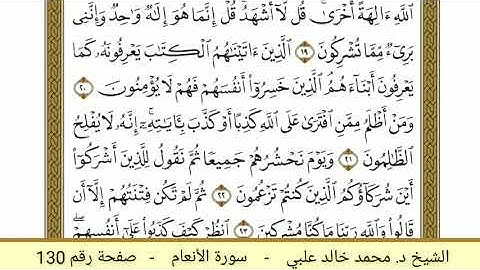 ٱللَّهِ ءَالِهَةً أُخْرَىٰۚ قُل لَّآ أَشْهَدُۚ قُلْ إِنَّمَا هُوَ إِلَٰهٌ وَٰحِدٌ وَإِنَّنِى
بَرِىٓءٌ مِّمَّا تُشْرِكُونَ ١٩ ٱلَّذِينَ ءَاتَيْنَٰهُمُ ٱلْكِتَٰبَ يَعْرِفُونَهُۥ كَمَا
يَعْرِفُونَ أَبْنَآءَهُمُۘ ٱلَّذِينَ خَسِرُوٓا۟ أَنفُسَهُمْ فَهُمْ لَا يُؤْمِنُونَ ٢٠
وَمَنْ أَظْلَمُ مِمَّنِ ٱفْتَرَىٰ عَلَى ٱللَّهِ كَذِبًا أَوْ كَذَّبَ بِـَٔايَٰتِهِۦٓۗ إِنَّهُۥ لَا يُفْلِحُ
ٱلظَّٰلِمُونَ ٢١ وَيَوْمَ نَحْشُرُهُمْ جَمِيعًا ثُمَّ نَقُولُ لِلَّذِينَ أَشْرَكُوٓا۟
أَيْنَ شُرَكَآؤُكُمُ ٱلَّذِينَ كُنتُمْ تَزْعُمُونَ ٢٢ ثُمَّ لَمْ تَكُن فِتْنَتُهُمْ إِلَّآ أَن
قَالُوا۟ وَٱللَّهِ رَبِّنَا مَا كُنَّا مُشْرِكِينَ ٢٣ ٱنظُرْ كَيْفَ كَذَبُوا۟ عَلَىٰٓ أَنفُسِهِمْۚ
الشيخ د. محمد خالد علبي - سورة الأنعام - صفحة رقم 130